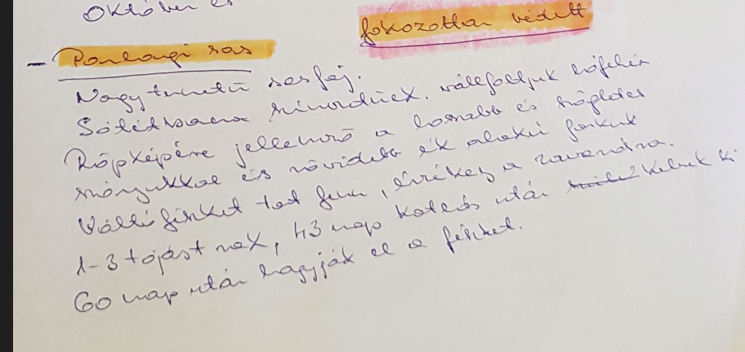 Október és
fokozottan védett
- Parlagi sas
Nagytermetű sasfaj.
Sötétbarna színezetűek. vállfoltjuk hófehér
Röpképére jellemző a hosszabb és szögletes
szárnyukkal és rövidebb ék alakú farkuk
Váltófészket tart fenn, érzékeny a zavarásra.
1-3 tojást rak, 43 nap kotlás után kelnek ki
60 nap után hagyják el a fészket.